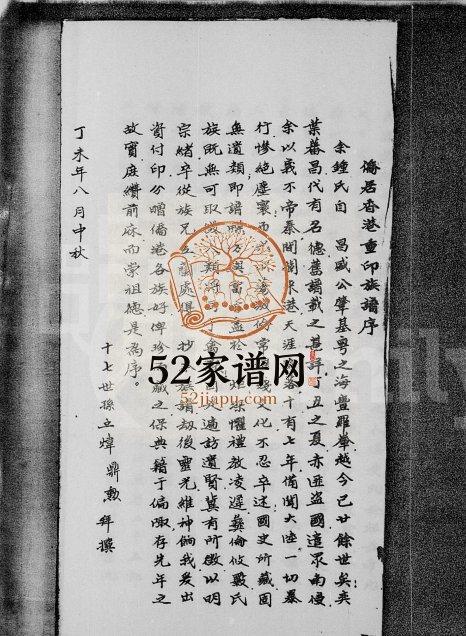 僑居香港重印族譜序
余鍾氏自 昌盛公肇基粤之海豐羅輋越今已廿餘世矣奕
葉蕃昌代有名德舊譜載之甚詳丁丑之夏赤匪盜國遣眾南侵
余以義不帝秦間關來港天涯落十有七年備聞大陸一切暴
行慘絕塵寰而文化不忍卒述國史所藏固
無遺類即譜懼禮教凌遲彝倫攸斁氏
族既無可取遍訪遺賢冀有所徵以明
宗緒卒從族兄處得抄族譜劫後靈光維神餉我爰出
資付印分贈僑港各族好俾珍藏之保典籍于偏陬存先年之
故實庶纘前庥而榮祖德是為序。
丁未年八月中秋
十七世孫立煒 鼎勳 拜撰
52家谱网
52jiapu.com